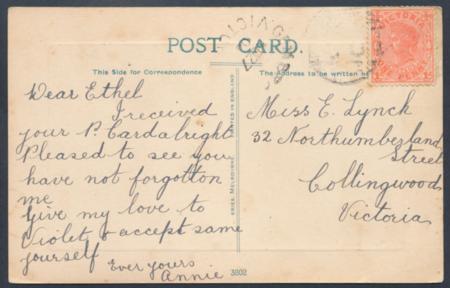 POST CARD.
This Side for Correspondence
The Address to be written
VICTORIA
Dear Ethel
I received
your P. Card alright
Pleased to see you
have not forgotton
me
Give my love to
Violet, & accept same
yourself
Ever yours
Annie
Miss E. Lynch
32 Northumberland
Street
Collingwood
Victoria
PRINTED IN ENGLAND
MELBOURNE
3802